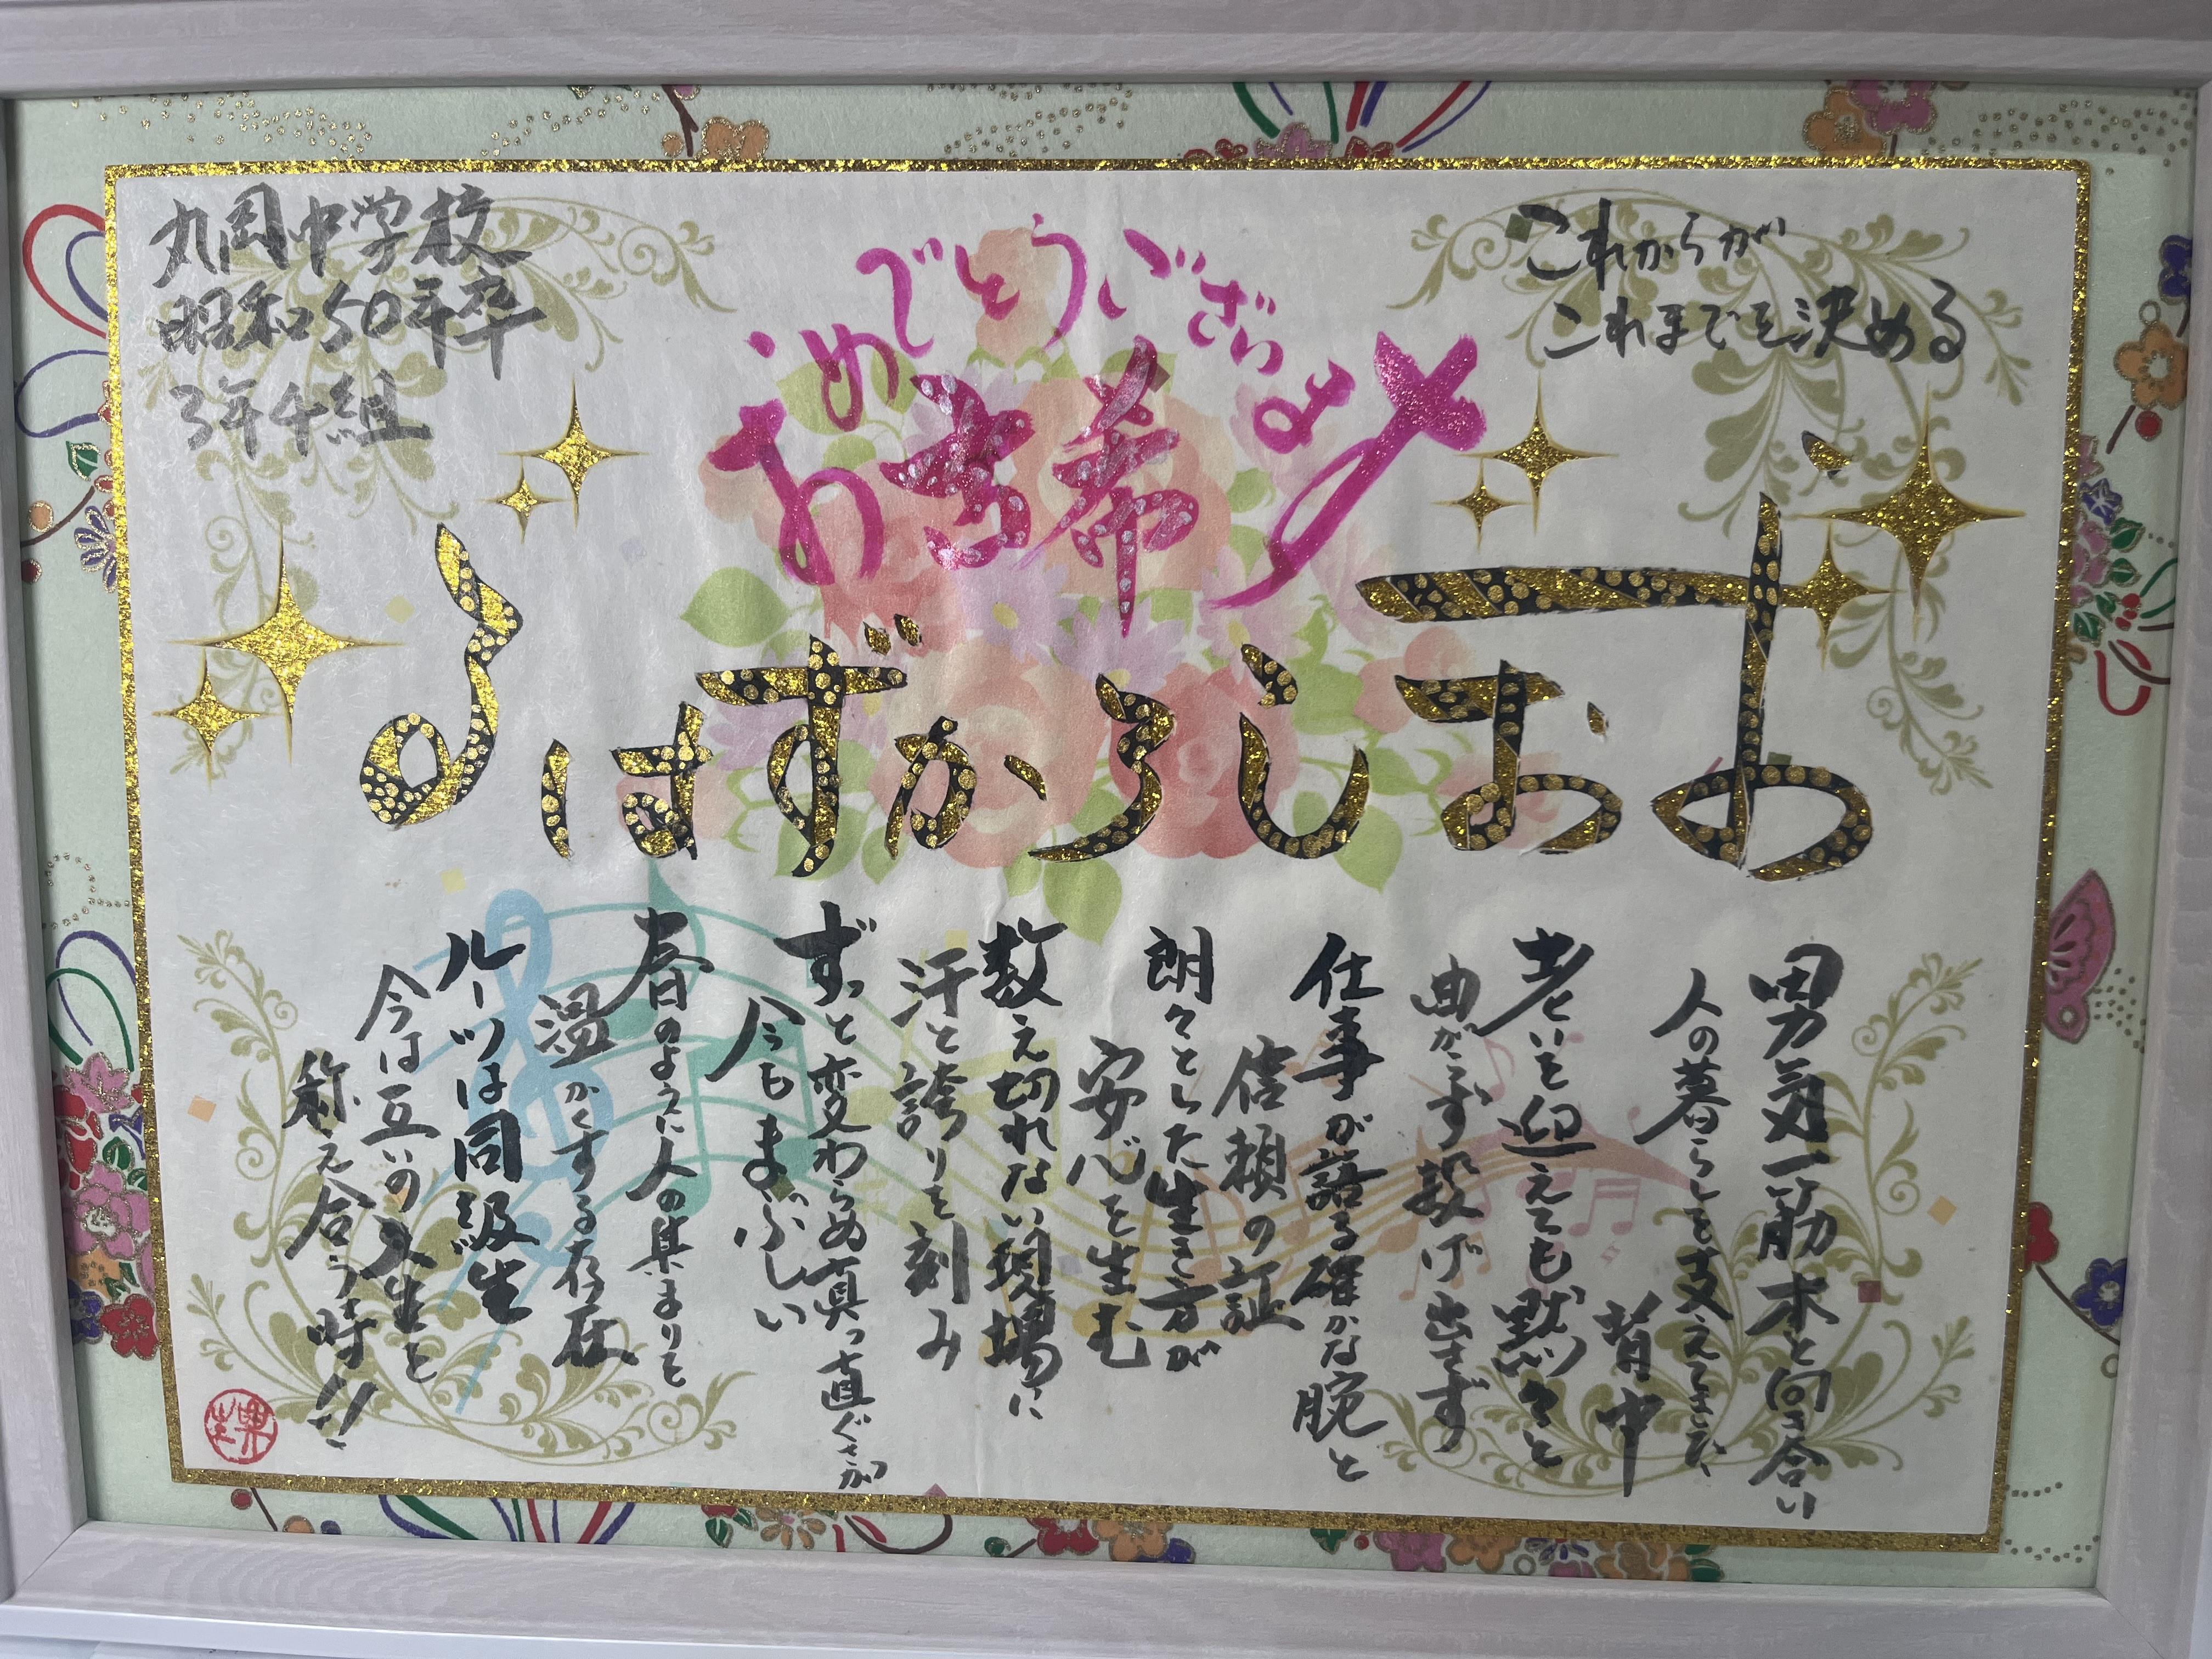 これからが
これまでを決める
丸岡中学校
昭和50年卒
3年4組
お古希
おめでとうございます
おおしろかずはる
男気一筋木と向き合い
人の暮らしを支えてきた
背中
老いを迎えても黙々と
曲がらず投げ出さず
仕事が語る確かな腕と
信頼の証
朗々とした生き方が
安心を生む
数え切れない現場に
汗と誇りを刻み
ずっと変わらぬ真っ直ぐさが
今もまぶしい
春日のように人の集まりを
温かくする存在
ルーツは同級生
今は互いの人生を
称え合う時!!